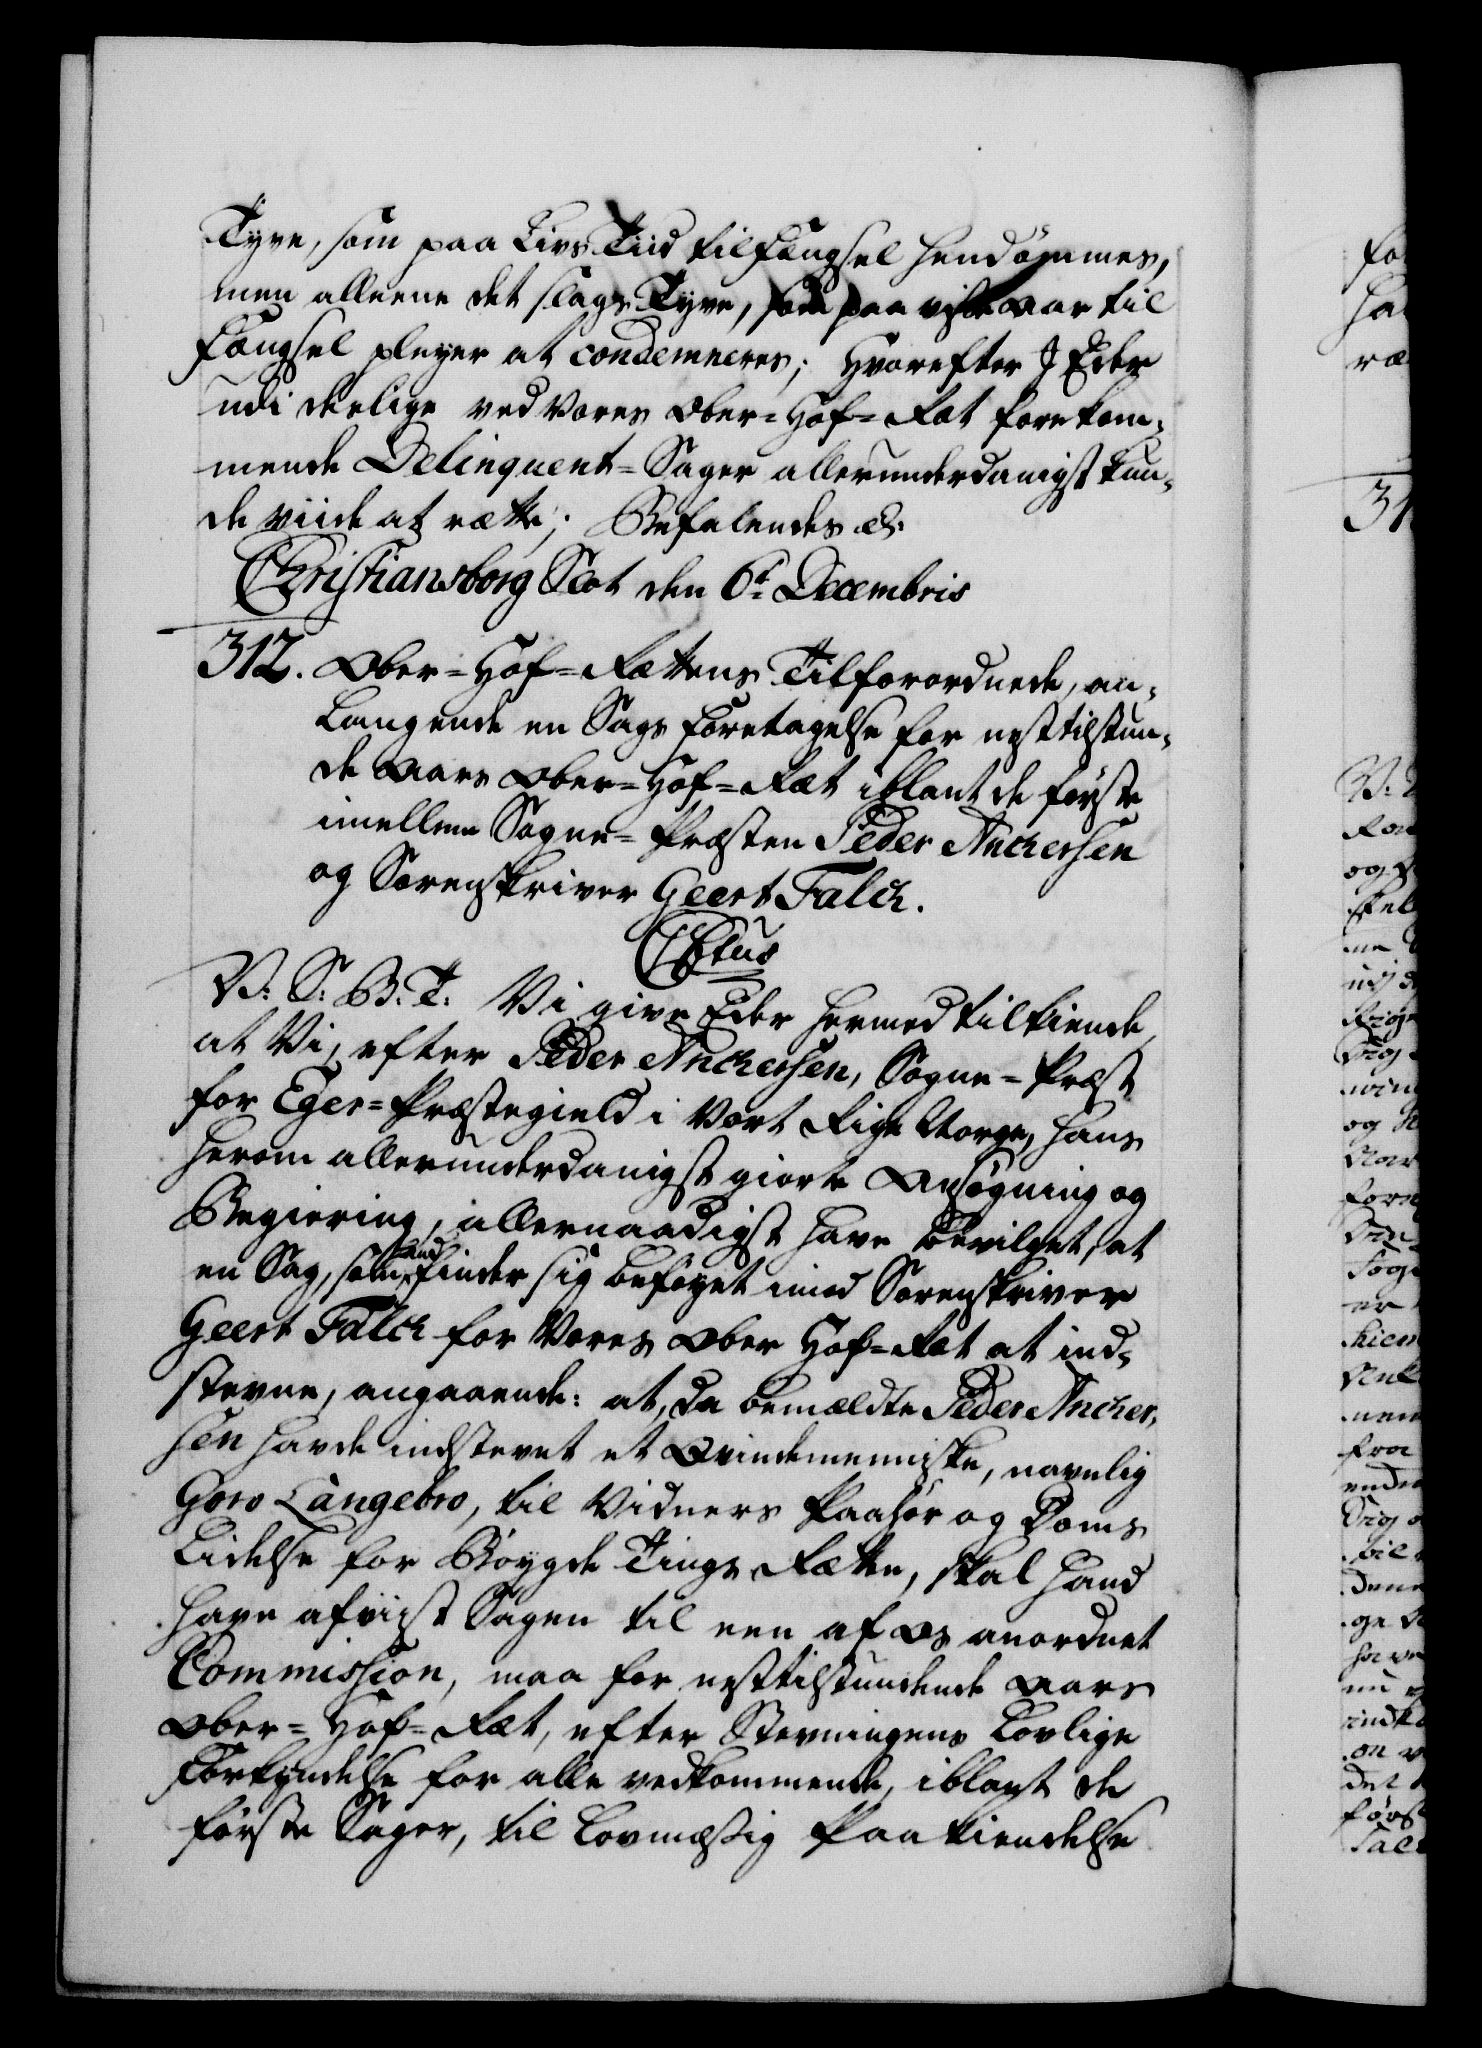 Tyve, som paa Livs Tiid til Fængsel hendømmes,
men alleene det slags Tyve, som paa visse Aar til
Fængsel pleyer at condemneres; Hvorefter I Eder
udi deslige ved Vores Ober-Hof-Ræt forekom¬
mende Delinquent-Sager allerunderdanigst kun¬
de viide at rætte; Befalendes &c.
Christiansborg Slot den 6te Decembris
312. Ober-Hof-Rættens Tilforordnede, an¬
langende en Sags Foretagelse for nesttilstun¬
de Aars Ober-Hof-Ræt iblant de første
imellem Sogne-Præsten Peder Anchersen
og Sorenskriver Geert Falch.
Chr: 6tus
V: S: B: T: Vi give Eder hermed tilkiende,
at Vi, efter Peder Anchersen, Sogne-Præst
for Eger-Præstegield i Vort Rige Norge, hans
herom allerunderdanigst giorte Ansøgning og
Begiering, allernaadigst have bevilget, at
en Sag, som hand finder sig beføyet imod Sorenskriver
Geert Falch for Vores Ober Hof-Ræt at ind¬
stevne, angaaende: at, da bemældte Peder Ancher¬
sen havde indstevnt et Qvindemenniske, navnlig
Goro Langebro, til Vidners Paahør og Doms
Lidelse for Bøygde Tings Rætte, skal hand
have afviist Sagen til een af Os anordnet
Commission, maa for nesttilstundende Aars
Ober-Hof-Ræt, efter Stevningens Lovlige
Forkyndelse for alle vedkommende, iblant de
første Sager, til Lovmæssig Paakiendelse